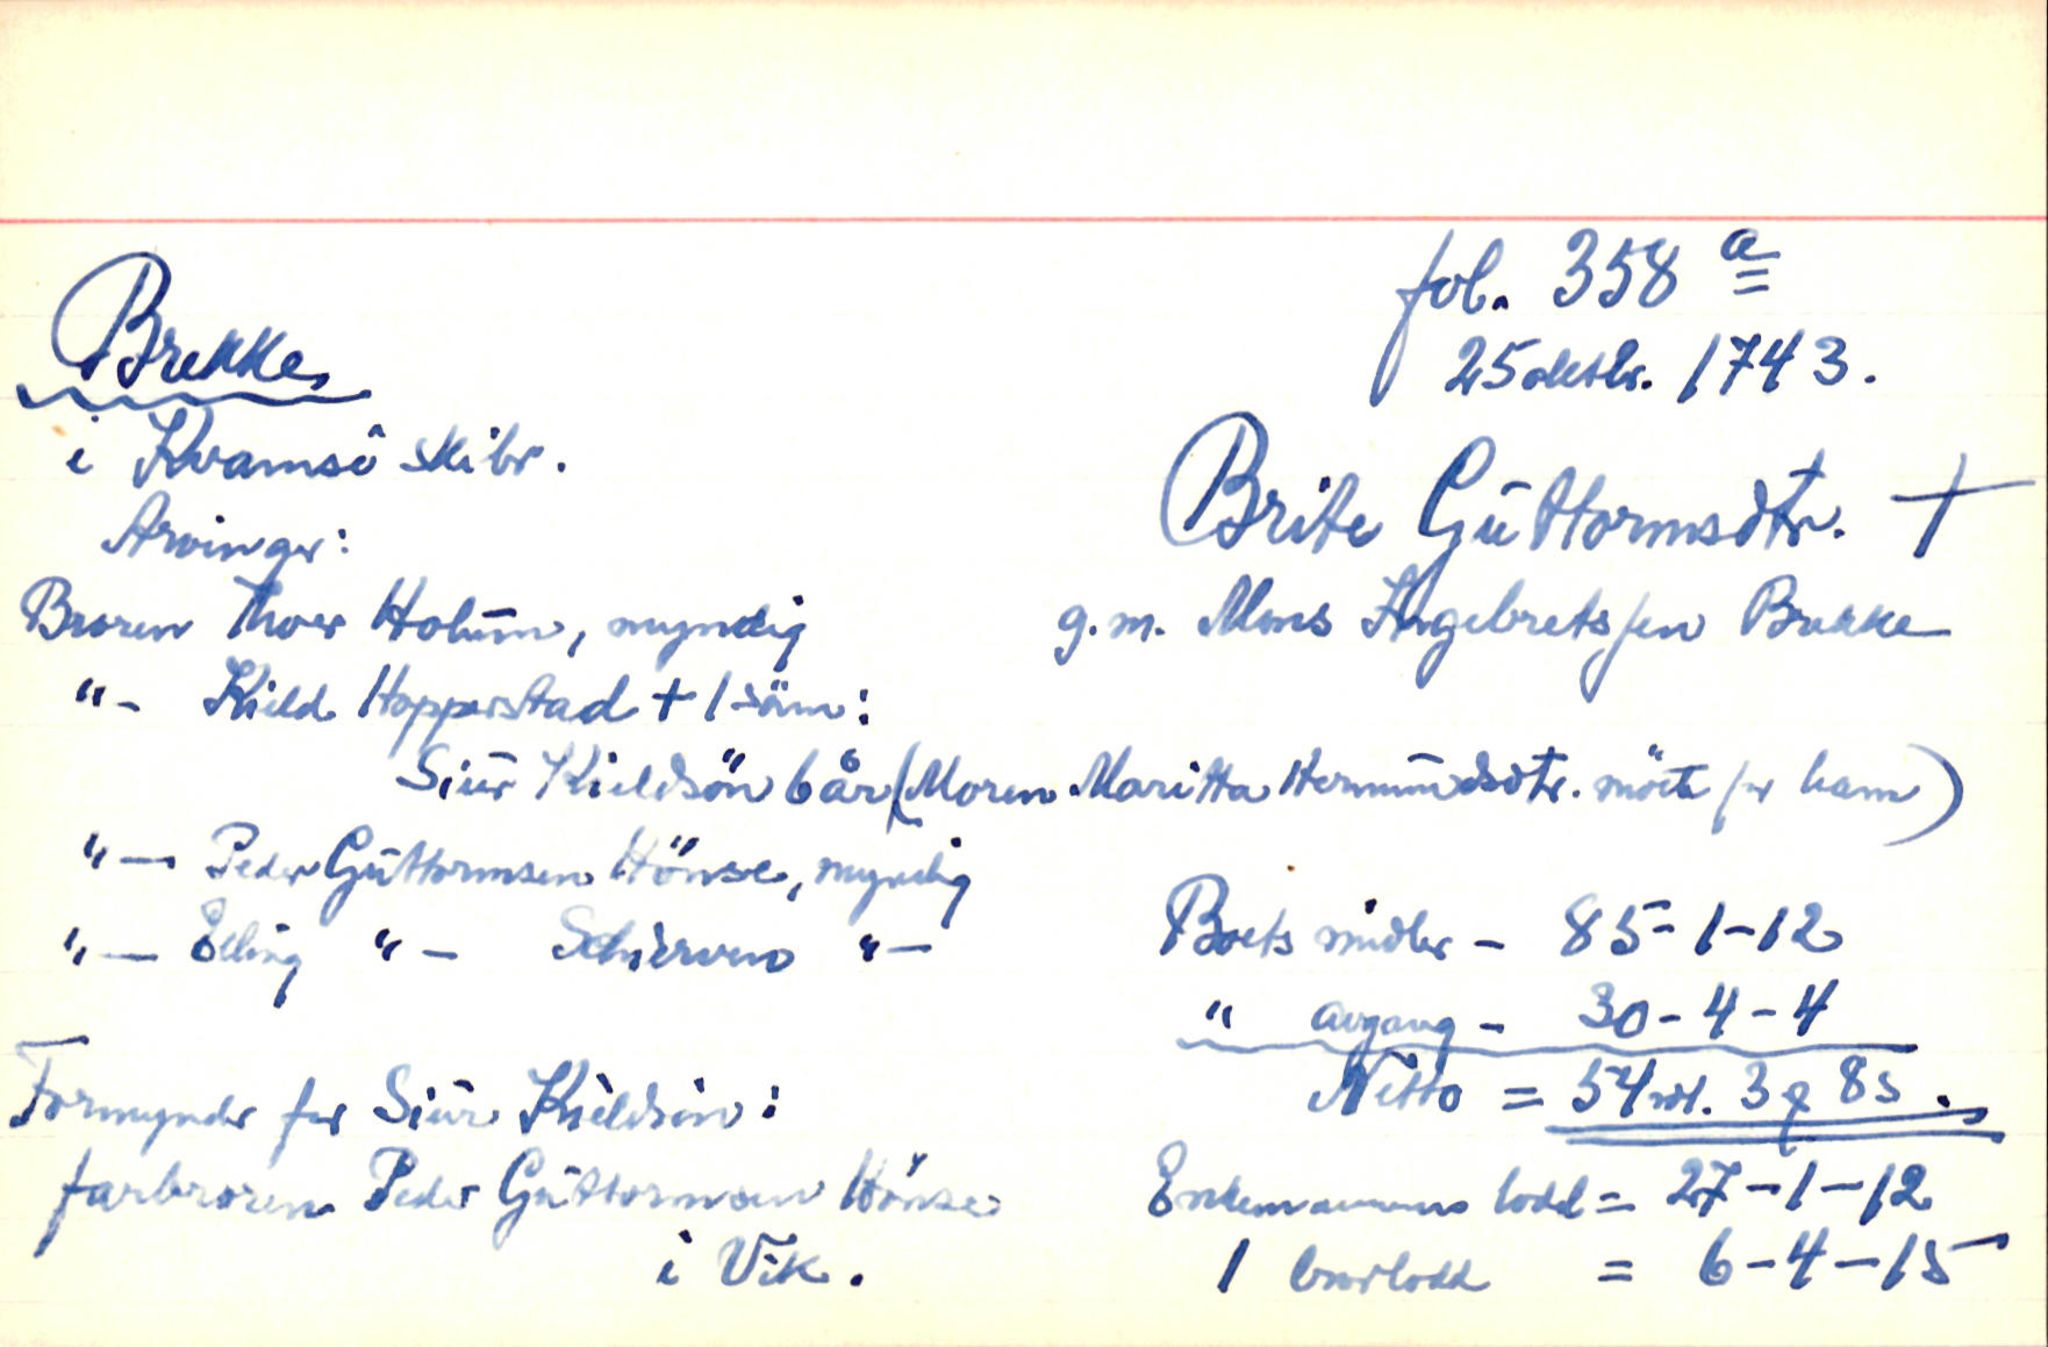 fol. 358 a
25 oktbr. 1743.
Brekke
i Kvamsö skibr.
Arvinger:
Brite Guttormsdtr. +
g.m. Mons Ingebretssen Brekke
Broren Thoer Holum, myndig
"- Kield Hopperstad + 1 sön:
Siur Kieldsön 6 år (Moren Maritta Hermundsdtr. mötte for ham)
"- Peder Guttormsen Hönse, myndig
"- Elling "- Schierven "-
Boets midler - 85-1-12
" avgang - 30-4-4
Netto = 54 rdl. 3 ƍ 8 s.
Formynder for Siur Kieldsön:
farbroren Peder Guttormsen Hönse
i Vik.
Enkemannens lodd = 27-1-12
1 brorlodd = 6-4-15